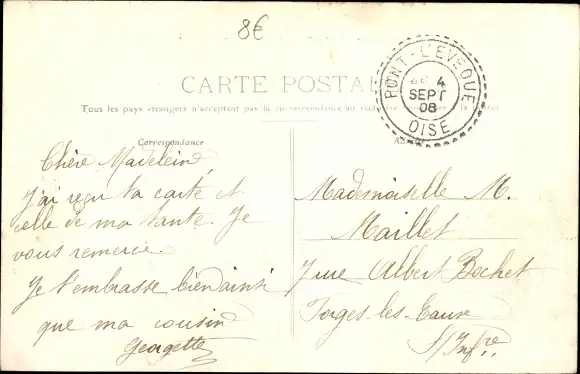 8€
CARTE POSTALE
Tous les pays étrangers n'acceptent pas la correspondance au
PONT-L'EVEQUE
4
SEPT
08
OISE
Correspondance
Chère Madeleine
J'ai reçu ta carte et
celle de ma tante. Je
vous remercie.
Je t'embrasse bien ainsi
que ma cousine
Georgette
Mademoiselle M.
Maillet
7 rue Albert Bochet
Forges-les-Eaux
S/Infre